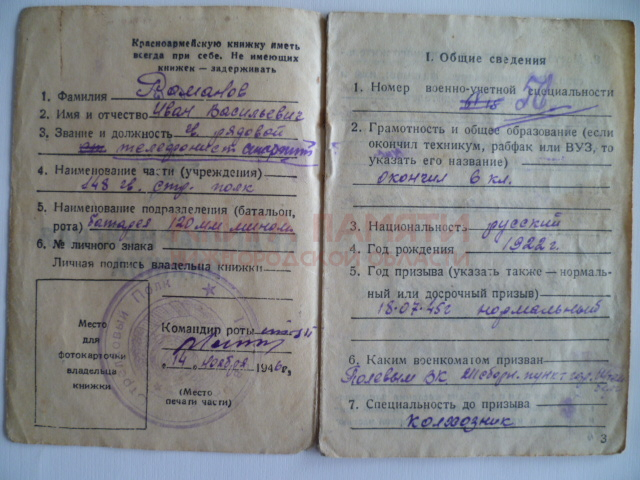 Красноармейскую книжку иметь
всегда при себе. Не имеющих
книжек — задерживать
1. Фамилия Романов
2. Имя и отчество Иван Васильевич
3. Звание и должность гв рядовой
телефонист
4. Наименование части (учреждения)
148 гв. стр. полк
5. Наименование подразделения (батальон,
рота) батарея 120 мм мином
6. № личного знака
Личная подпись владельца книжки
Место
для
фотокарточки
владельца
книжки
Командир роты
„14" ноября 1946г.
(Место
печати части)
Стрелковый Полк
I. Общие сведения
1. Номер военно-учетной специальности
2. Грамотность и общее образование (если
окончил техникум, рабфак или ВУЗ, то
указать его название)
окончил 6 кл.
3. Национальность русский
4. Год рождения 1922г.
5. Год призыва (указать также — нормаль-
ный или досрочный призыв)
18.07.45г нормальный
6. Каким военкоматом призван
Полевым ВК сборн. пункт
7. Специальность до призыва
колхозник
3
ПАМЯТИ
НОВГОРОДСКОЙ ОБЛАСТИ